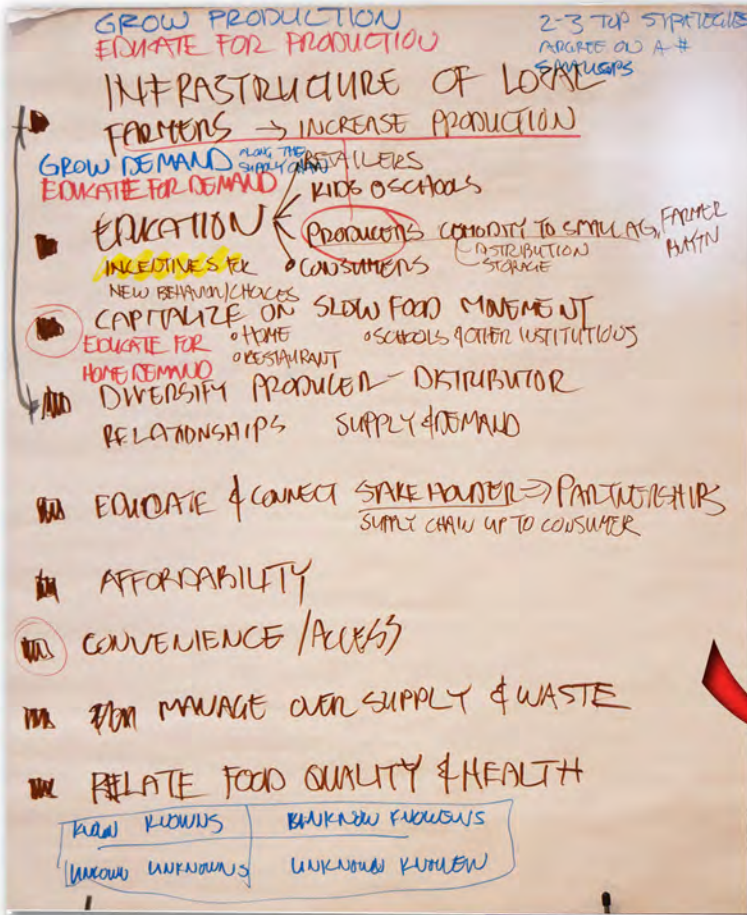 GROW PRODUCTION
EDUCATE FOR PRODUCTION
2-3 TOP STRATEGIES
AGREE ON A #
INFRASTRUCTURE OF LOCAL
FARMERS → INCREASE PRODUCTION
GROW DEMAND ALONG THE SUPPLY CHAIN
EDUCATE FOR DEMAND
EDUCATION
RETAILERS
KIDS @ SCHOOLS
PRODUCERS COMODITY TO SMALL AG, FARMER
DISTRIBUTION
STORAGE
CONSUMERS
INCENTIVES FOR
NEW BEHAVIOR/CHOICES
CAPITALIZE ON SLOW FOOD MOVEMENT
EDUCATE FOR
HOME DEMAND
HOME
RESTAURANT
SCHOOLS & OTHER INSTITUTIONS
DIVERSIFY PRODUCER - DISTRIBUTOR
RELATIONSHIPS SUPPLY & DEMAND
EDUCATE & CONNECT STAKEHOLDER ⇒ PARTNERSHIPS
SUPPLY CHAIN UP TO CONSUMER
AFFORDABILITY
CONVENIENCE / ACCESS
MANAGE OVER SUPPLY & WASTE
RELATE FOOD QUALITY & HEALTH
KNOWNS
UNKNOWNS UNKNOWN